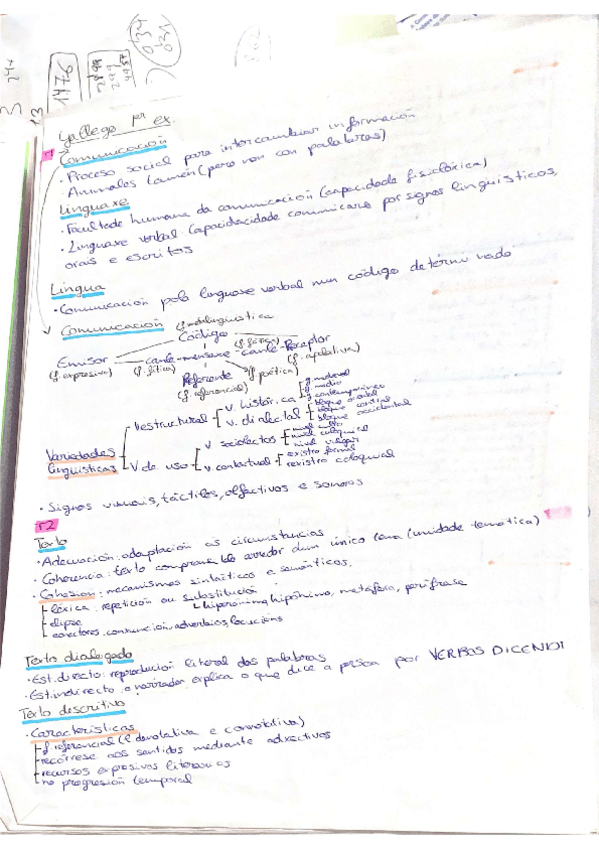 1476
2899
299
034
021
Gallego 1º ex.
T1
Comunicación
· Proceso social para intercambiar información
· Animales tamén (pero non con palabras)
Linguaxe
· Facultade humana da comunicación (capacidade fisiolóxica)
· Linguaxe verbal (capacidacidade comunicarse por signos lingüísticos,
orais e escritos
Lingua
· Comunicación pola linguaxe verbal nun código determinado
Comunicación
(f. metalingüística)
Código
(f. fática)
Emisor canle - mensaxe - canle - Receptor
(f. expresiva) (f. fática) (f. poética) (f. apelativa)
Referente
(f. referencial)
Variedades lingüísticas
V. estructural
v. histórica
g. medieval
g. medio
g. contemporáneo
v. dialectal
bloque oriental
bloque central
bloque occidental
V de uso
V sociolectos
nivel culto
nivel coloquial
nivel vulgar
v. contextual
rexistro formal
rexistro coloquial
· Signos visuais, táctiles, olfactivos e sonoros
T2
Texto
· Adecuación: adaptación as circunstancias
· Coherencia: texto comprensible arredor dun único tema (unidade temática)
· Cohesión: mecanismos sintácticos e semánticos.
léxica: repetición ou substitución
hiperónimo, hipónimo, metáfora, perífrase
elipse
conectores: conxunción, adverbios, locucións
Texto dialogado
· Est. directo: reproducion literal das palabras
· Est. indirecto: o narrador explica o que dice a persoa por VERBOS DICENDI
Texto descritivo
· Características
f referencial (l denotativa e connotativa)
recórrese aos sentidos mediante adxectivos
recursos expresivos literarios
no progresión temporal